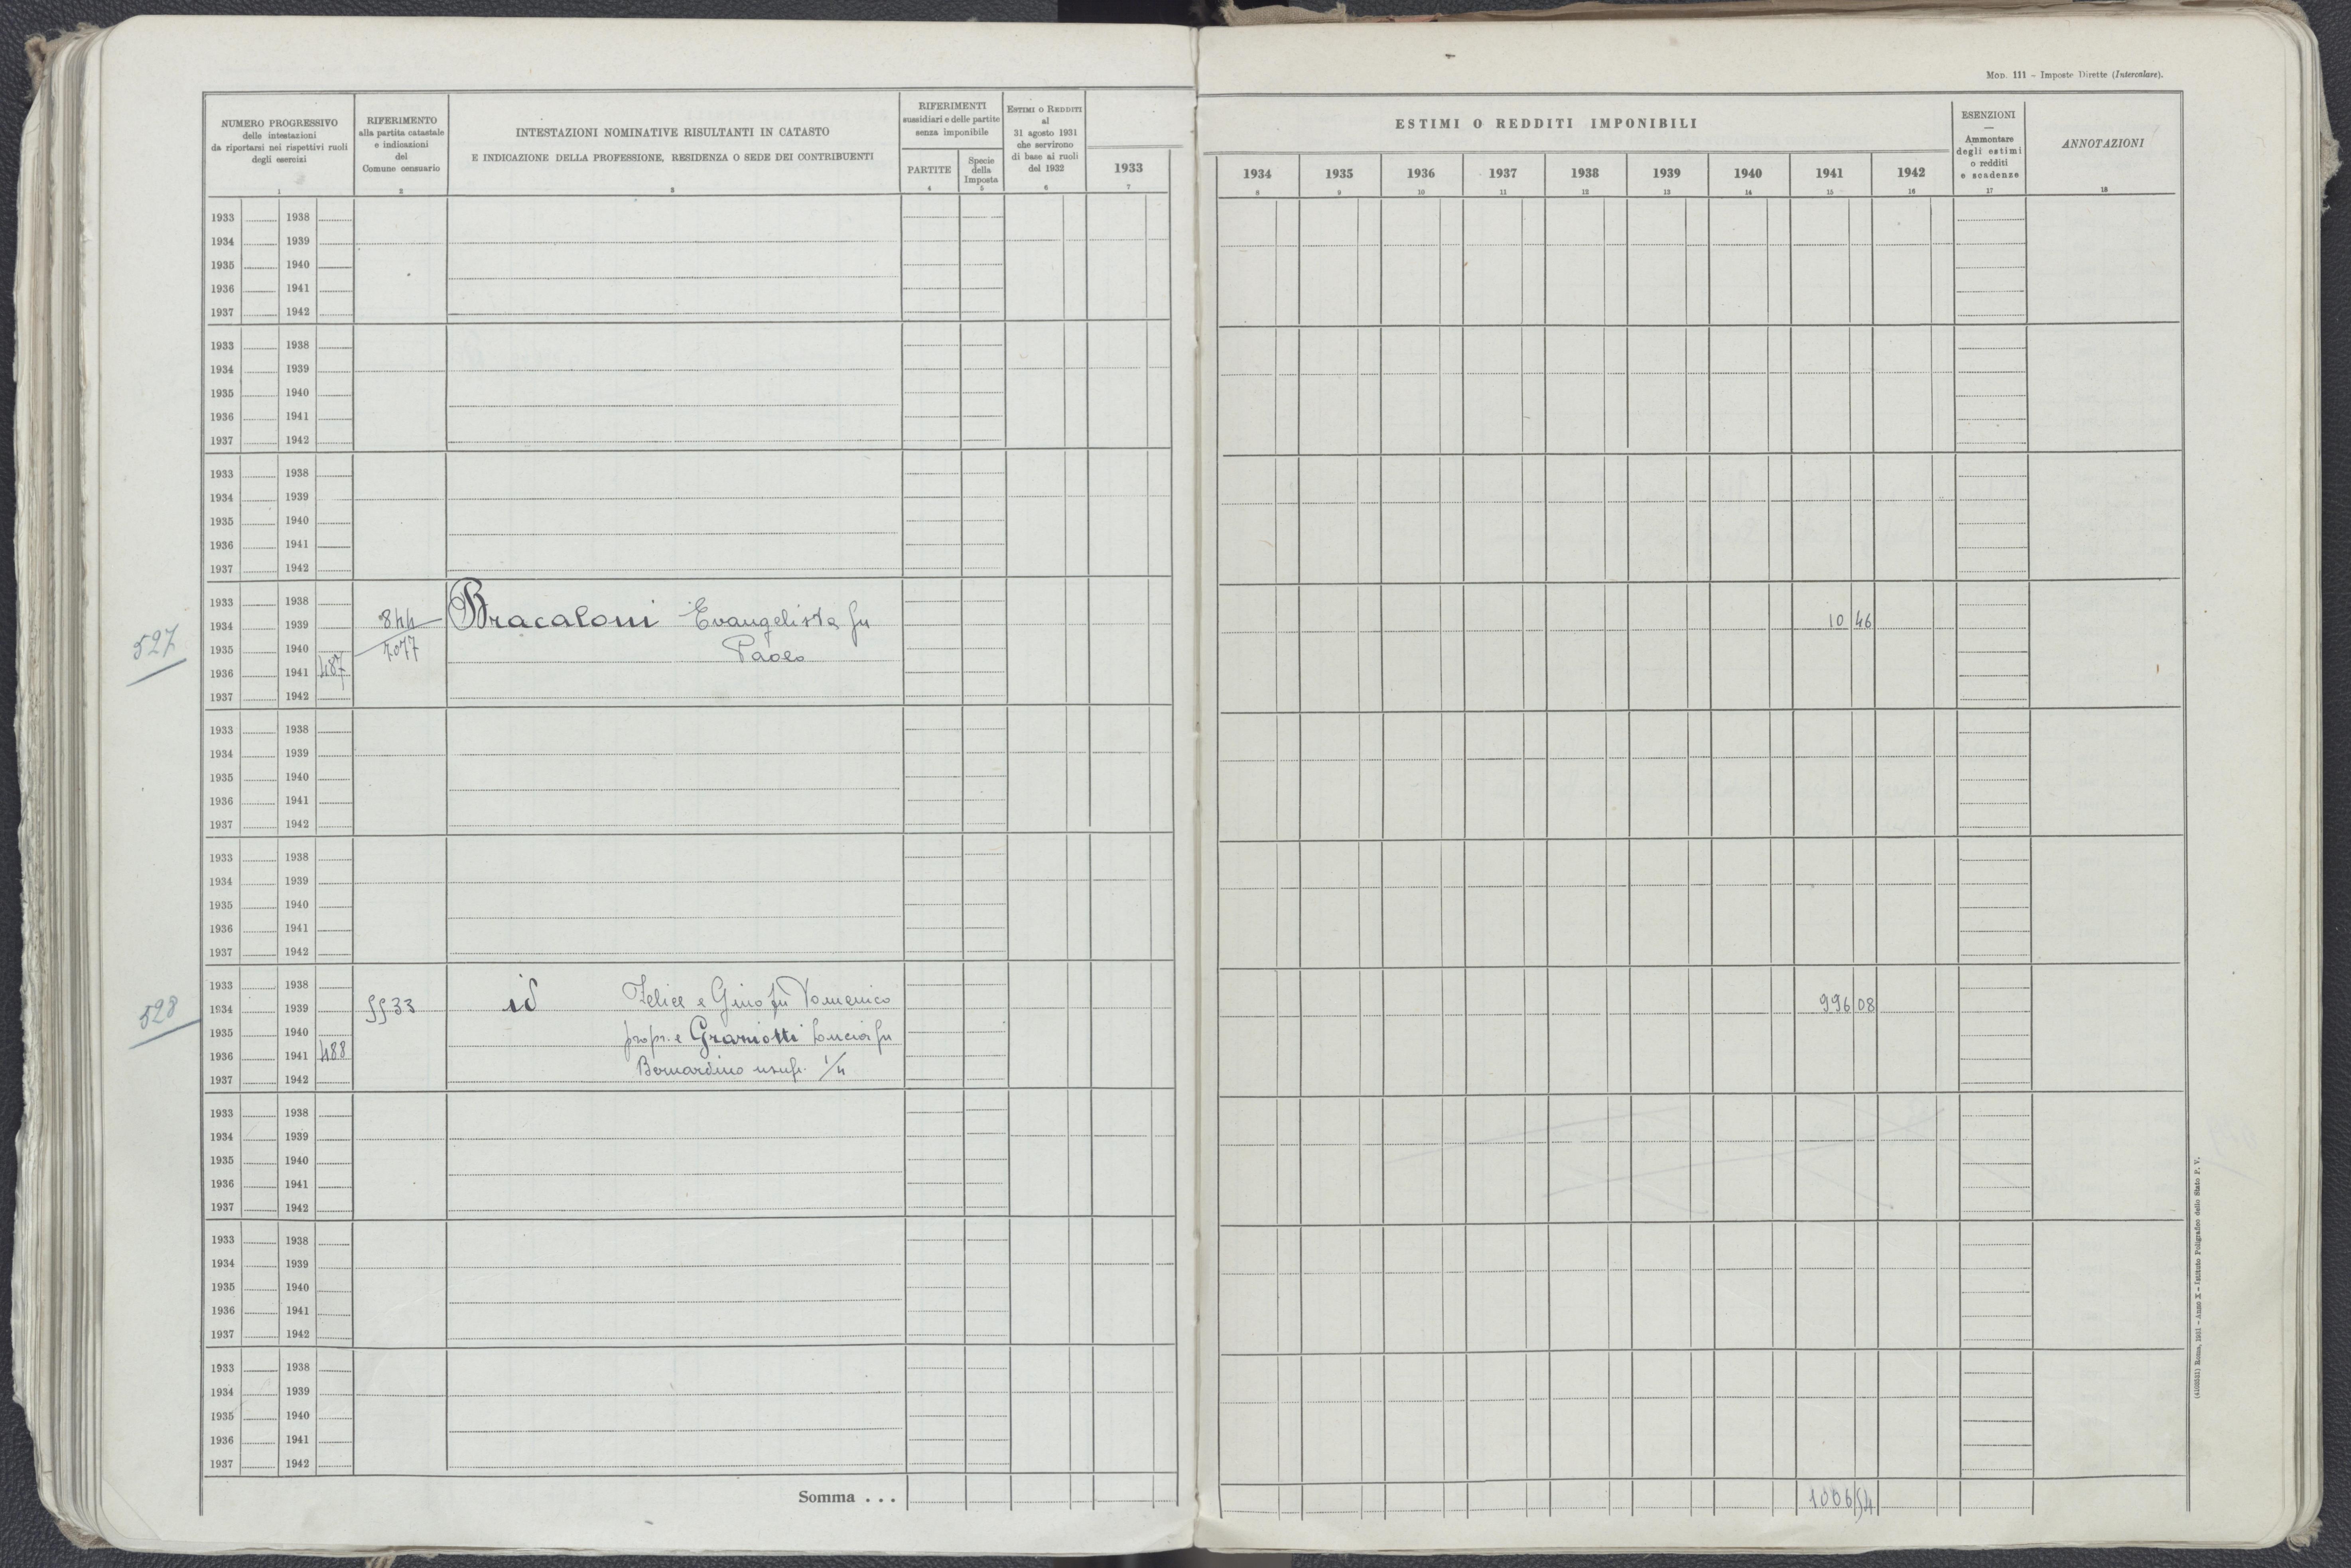 Mod. 111 – Imposte Dirette (Intercalare).
NUMERO PROGRESSIVO
delle intestazioni
da riportarsi nei rispettivi ruoli
degli esercizi
1
RIFERIMENTO
alla partita catastale
e indicazioni
del
Comune censuario
2
INTESTAZIONI NOMINATIVE RISULTANTI IN CATASTO
E INDICAZIONE DELLA PROFESSIONE, RESIDENZA O SEDE DEI CONTRIBUENTI
3
RIFERIMENTI
sussidiari e delle partite
senza imponibile
PARTITE
4
Specie
della
Imposta
5
Estimi o Redditi
al
31 agosto 1931
che servirono
di base ai ruoli
del 1932
6
1933
7
ESTIMI O REDDITI IMPONIBILI
1934 1935 1936 1937 1938 1939 1940 1941 1942
8 9 10 11 12 13 14 15 16
ESENZIONI
—
Ammontare
degli estimi
o redditi
e scadenze
17
ANNOTAZIONI
18
1933 1938
1934 1939
1935 1940
1936 1941
1937 1942
1933 1938
1934 1939
1935 1940
1936 1941
1937 1942
1933 1938
1934 1939
1935 1940
1936 1941
1937 1942
1933 1938
527 1934 1939 844 Bracaloni Evangelista fu 10 46
1935 1940 7077 Paolo
1936 1941 487
1937 1942
1933 1938
1934 1939
1935 1940
1936 1941
1937 1942
1933 1938
1934 1939
1935 1940
1936 1941
1937 1942
1933 1938
528 1934 1939 5533 id Felice e Gino fu Domenico 996 08
1935 1940 propr. e Graniotti Lucia fu
1936 1941 488
1937 1942 Bernardino usufr. 1/4
1933 1938
1934 1939
1935 1940
1936 1941
1937 1942
1933 1938
1934 1939
1935 1940
1936 1941
1937 1942
1933 1938
1934 1939
1935 1940
1936 1941
1937 1942
Somma . . . 1006 54
(4103531) Roma, 1931 – Anno X – Istituto Poligrafico dello Stato P. V.